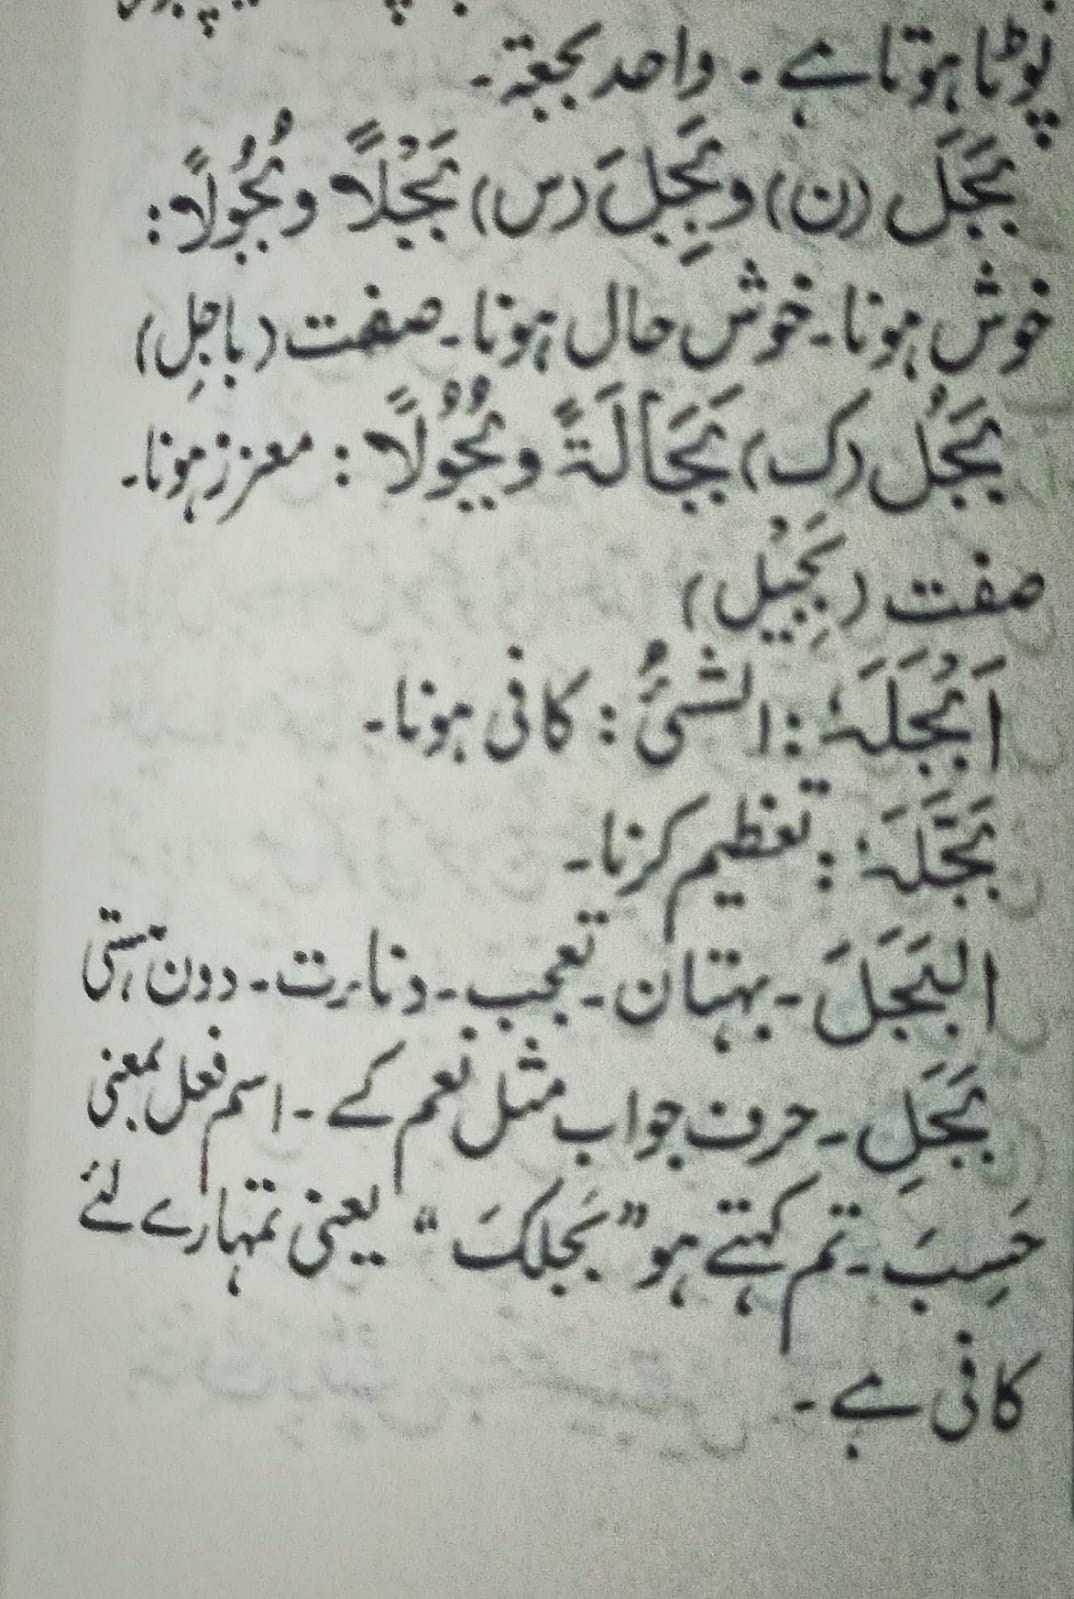 پوٹا ہوتا ہے - واحد بجعۃ -
بَجَلَ (ن) وبَجِلَ (س) بَجْلًا وبُجُولًا :
خوش ہونا - خوش حال ہونا - صفت (باجِل)
بَجُلَ (ک) بَجَالَۃً و بُجُوْلًا : معزز ہونا -
صفت (بَجِیْل)
اَبْجَلَہٗ : الشیُٔ : کافی ہونا -
بَجَّلَہٗ : تعظیم کرنا -
البَجَلَ - بہتان - تعجب - دناءت - دون ہمتی
بَجَلِ - حرف جواب مثل نعم کے - اسم فعل بمعنی
حَسِبَ - تم کہتے ہو ”بَجلکَ“ یعنی تمہارے لئے
کافی ہے -